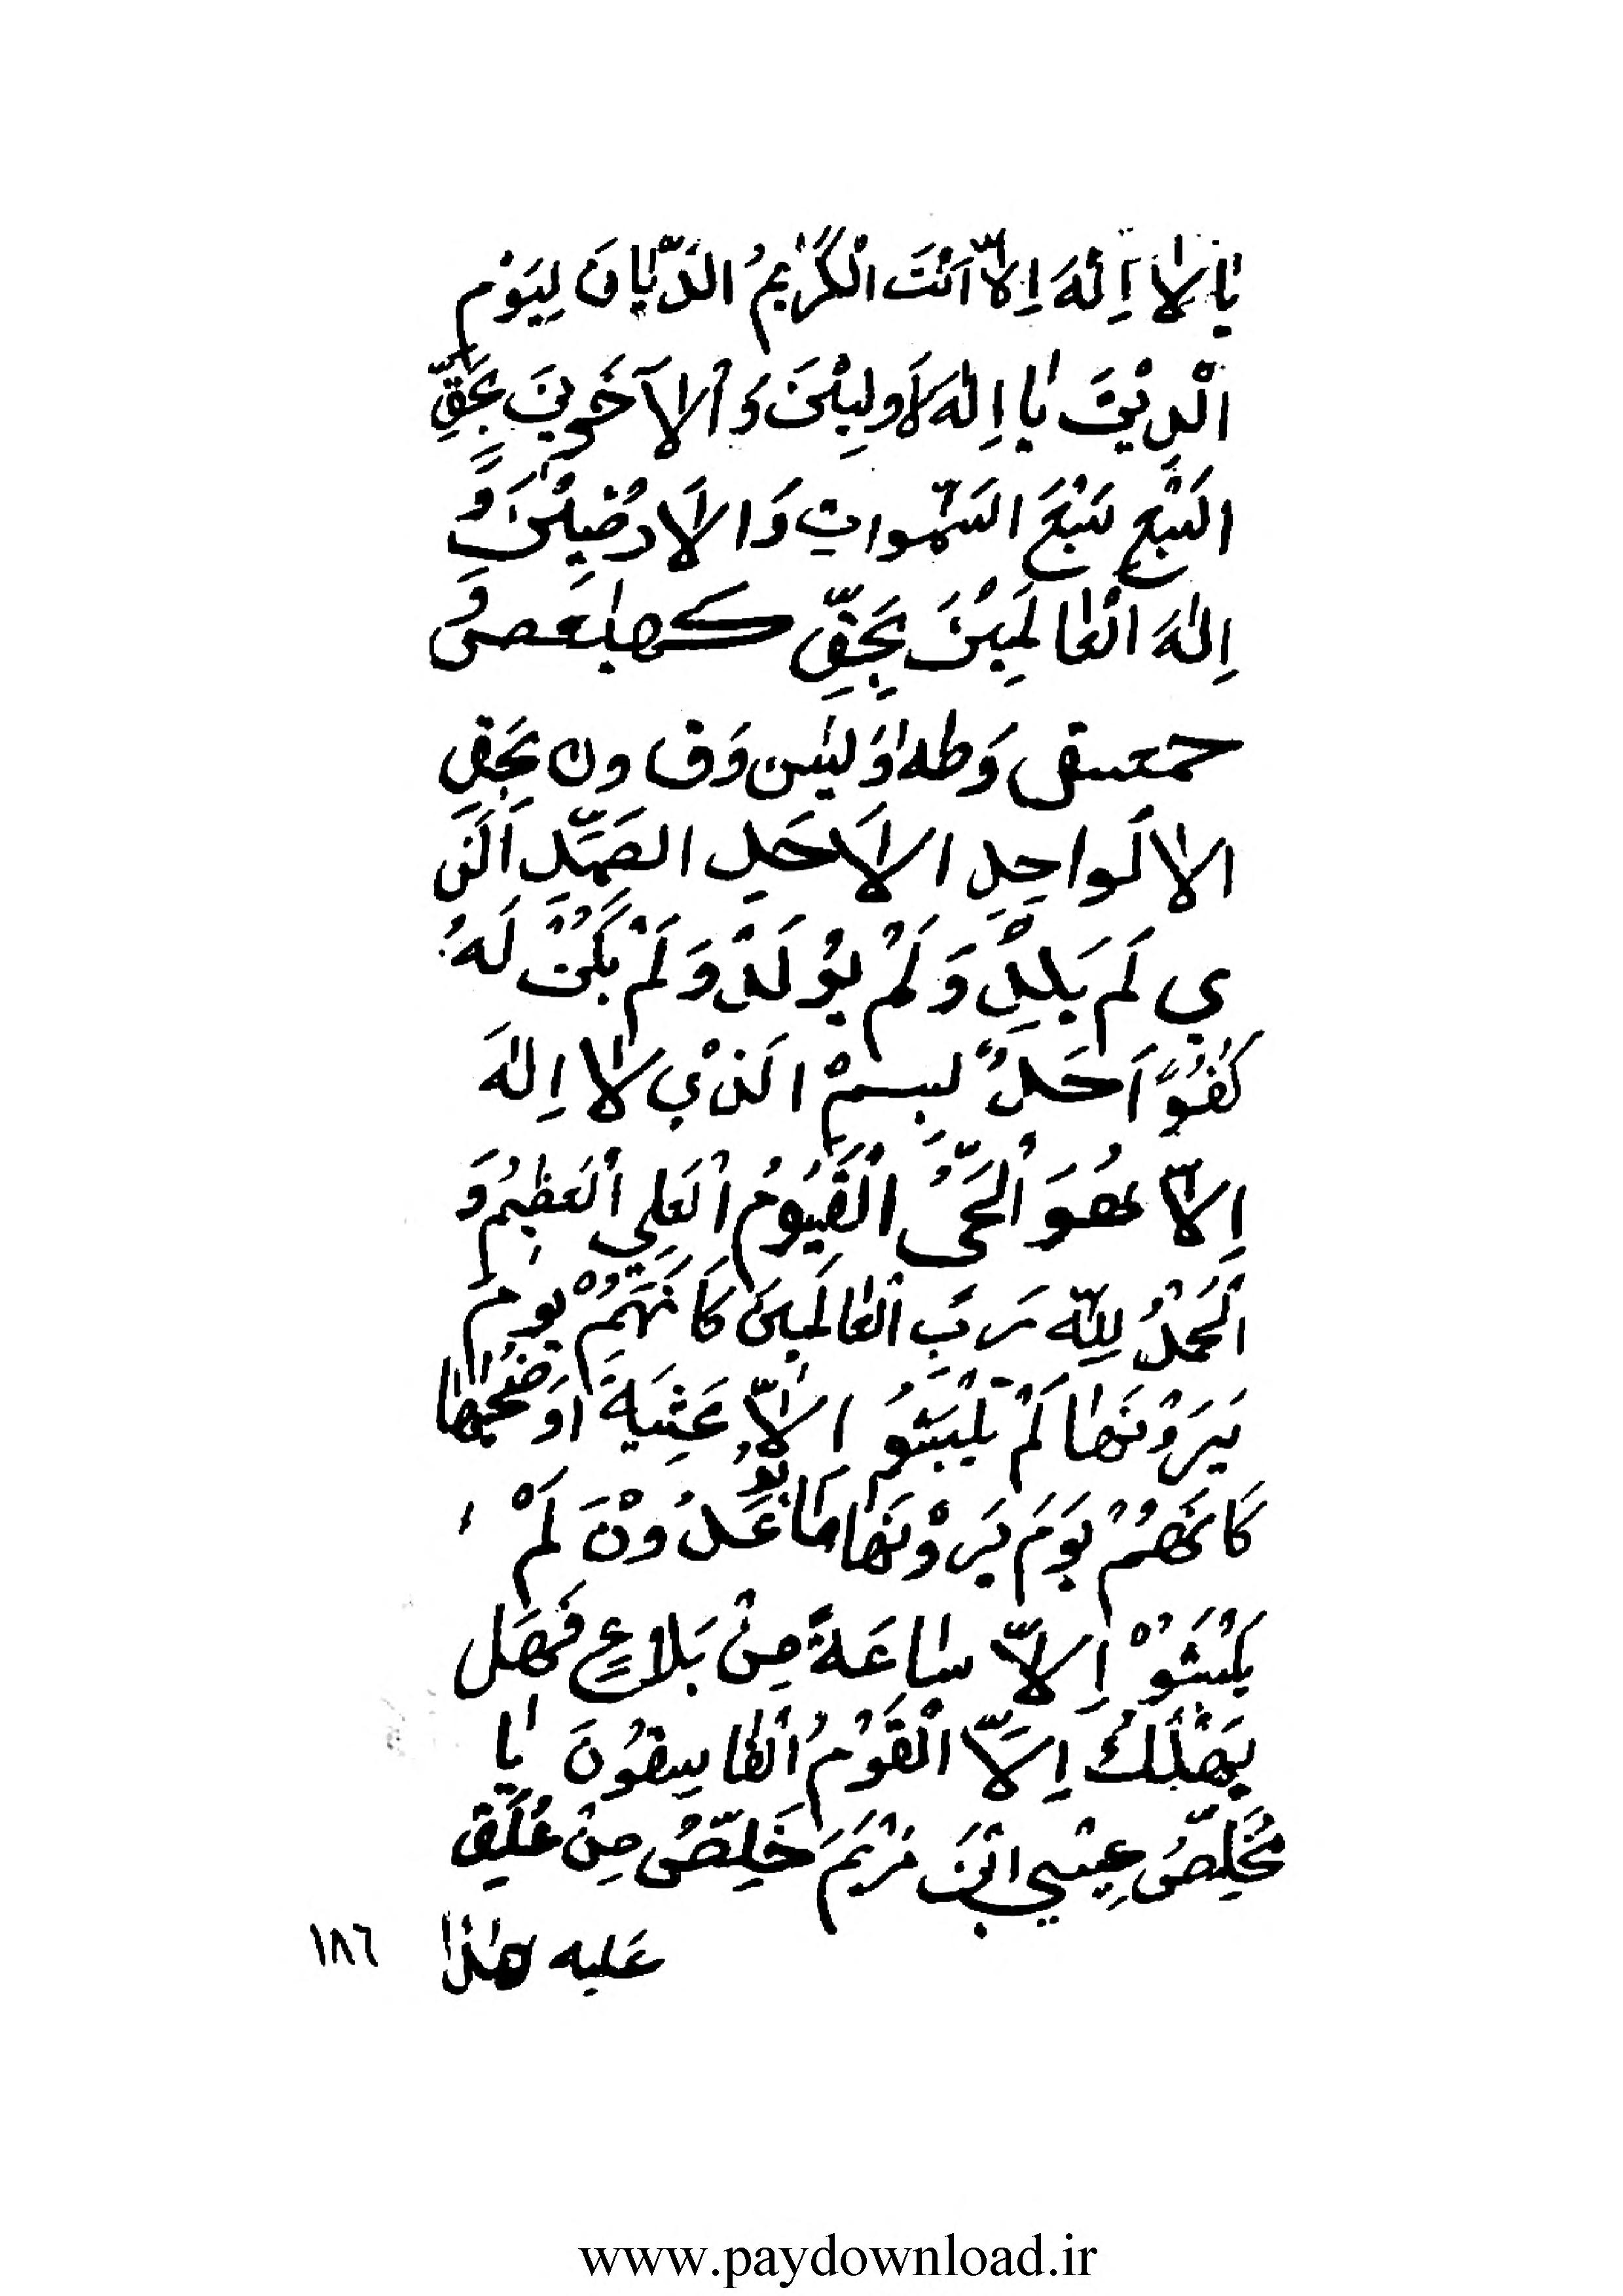 يَا لَا إِلٰهَ اِلّا اَنْتَ الْكَرِيْمُ الدَّيّانَ لِيَوْمِ
الْدِيْنَ يا اِلهَ لَاَولِيْنَ وَالْآخَرِينَ بِحَقِّ
السَبْعِ سَبْعَ السَّمٰواتِ وَالاَرضِيْنَ وَ
اِلٰهَ الْعٰالَمِيْنَ بِحَقِّ كهٰيٰعص وَ
حمعسق وَطه وَ يٰسن وَق ون بِحَقِ
الا لَواحِدِ الاَحَدِ الصَمَّدِ اَلَذ
ي لَم يَلِدْ وَ لَمْ يُوْلَدْ وَ لَمْ يَكُنْ لَهُ
كُفُوًا اَحَدٌ لبِسمْ الَذيْ لٰا اِلٰهَ
اِلّا هُوَ الْحَيُّ الْقَيُومُ الْعَلِي الْعَظِيمُ وَ
اَلْحَمْدُ لِلّٰهِ رَبِ الْعٰالَمِينَ كَا نَهَّمُ يَومَ
يَرَوْنَهٰا لَمْ يَلْبَثُو اِلّا عَشِيَةَ اَوَ ضُحٰيهٰا
كَا نَهُمْ يَوَمَ يَرَوْنَهٰا مٰا يُوعَدُوْنَ لَمْ
يَلْبَثُوْ اِلّا سٰاعَةً مِنْ بَلاٰعٍ فَهَل
يَهْلَكُ اِلَّا الْقَوْمُ الْفٰاسِقُونَ يٰا
مُخَلِّصُ عِيْسي ابْنَ مَرْيَمَ خَلِّصُ مِنْ عُلَّقِ
عَليه هٰذا ١٨٦
www.paydownload.ir